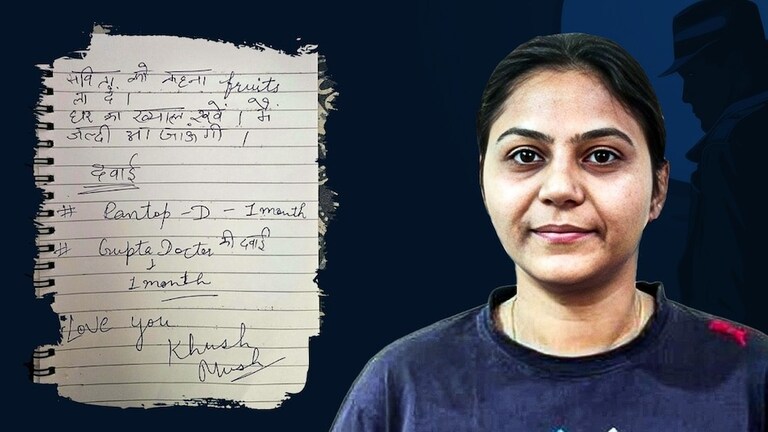 सविता को कहना fruits
ला दे ।
घर का ख्याल रखें । मैं
जल्दी आ जाऊंगी ।
दवाई
# Pantop-D - 1 month
# Gupta Doctor की दवाई
1 month
Love you
Khush